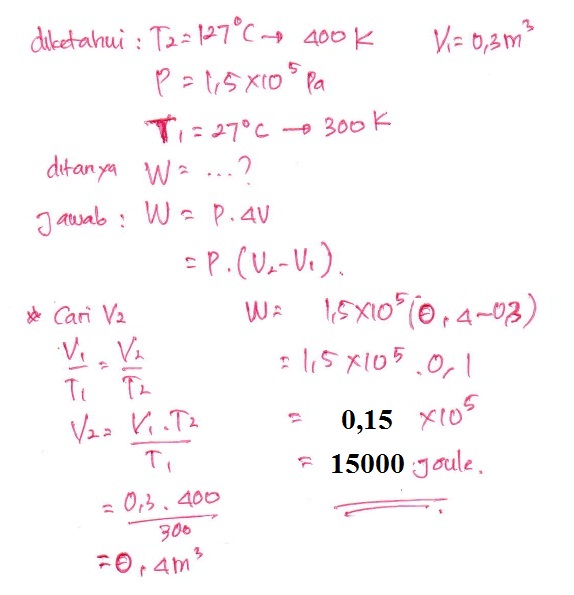 diketahui : T2 = 127°C → 400 K V1 = 0,3 m³
P = 1,5 × 10⁵ Pa
T1 = 27°C → 300 K
ditanya W = ...?
Jawab : W = P . ΔV
= P . (V2 - V1).
* Cari V2
V1/T1 = V2/T2
V2 = V1 . T2 / T1
= 0,3 . 400 / 300
= 0,4 m³
W = 1,5 × 10⁵ (0,4 - 0,3)
= 1,5 × 10⁵ . 0,1
= 0,15 × 10⁵
= 15000 joule.